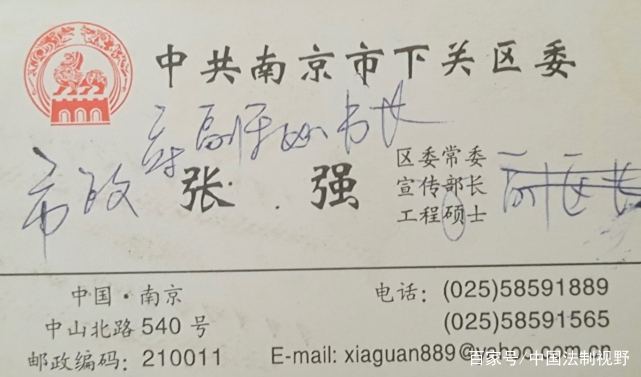 中共南京市下关区委
市政府副秘书长
张 强
区委常委
宣传部长
工程硕士
副区长
中国·南京
中山北路540号
邮政编码：210011
电话：(025)58591889
(025)58591565
E-mail: xiaguan889@yahoo.com.cn
百家号/中国法制视野